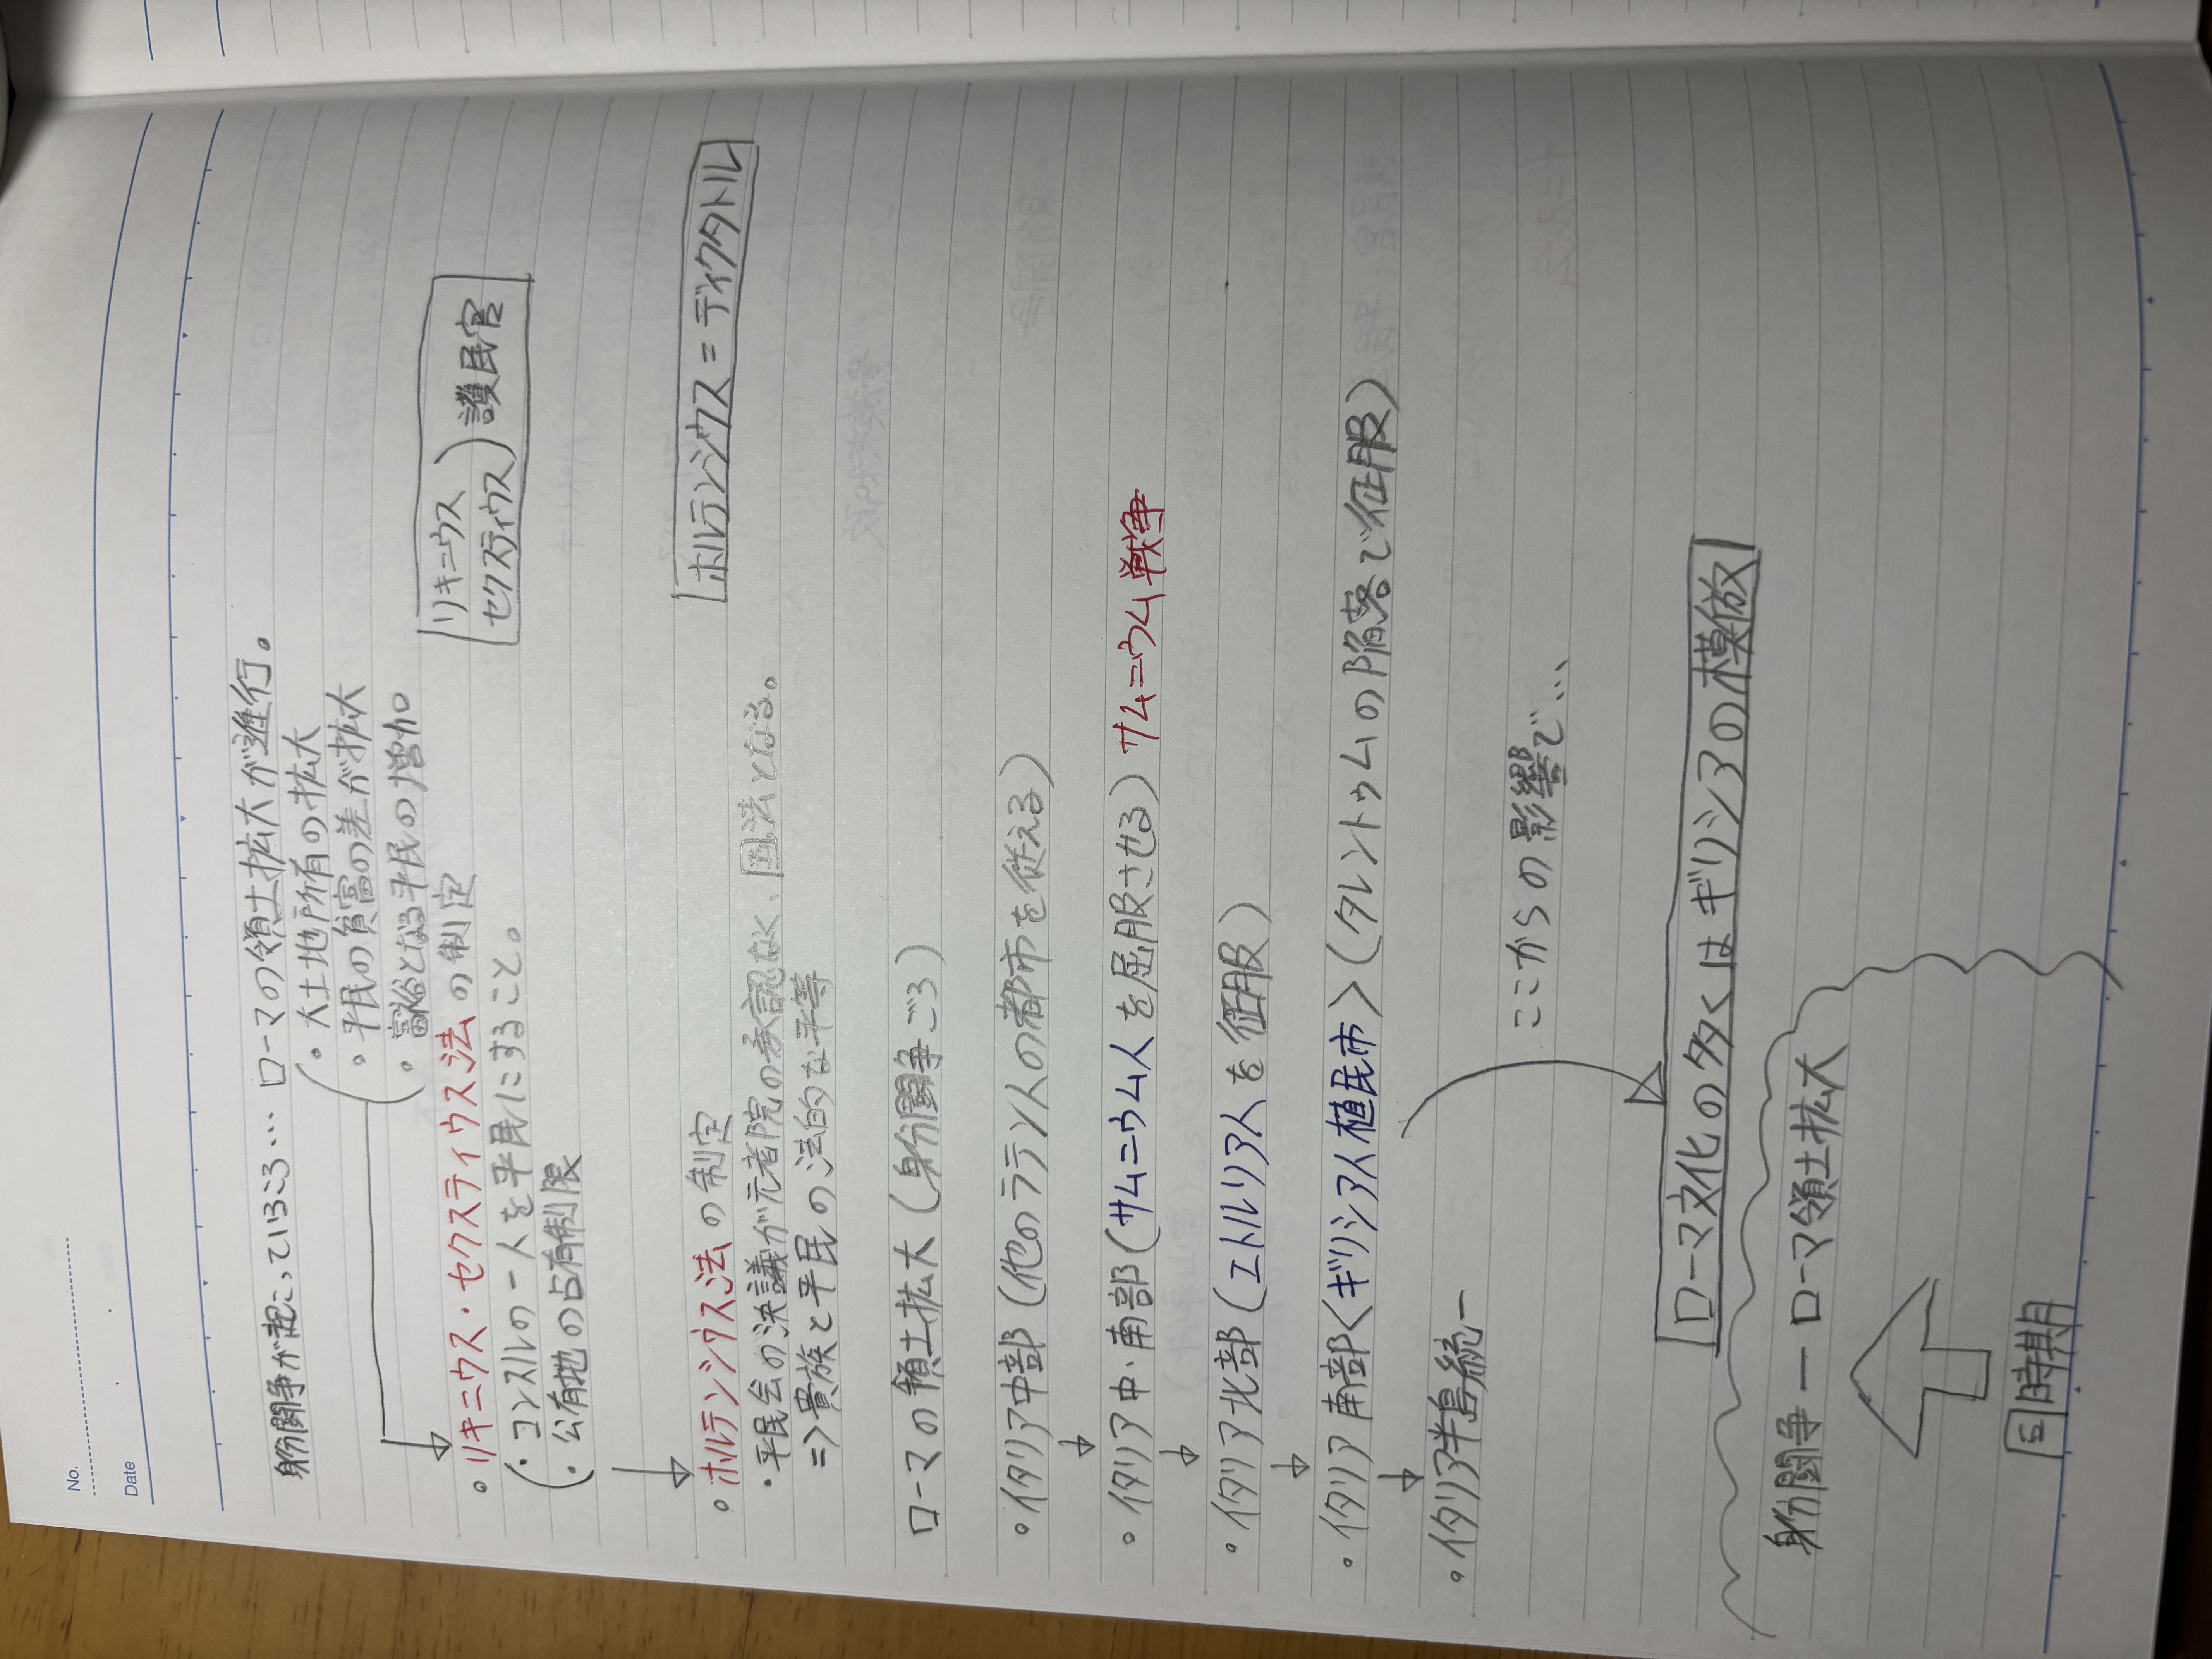 No.
Date
身分闘争が起こっているころ… ローマの領土拡大が進行。
・大土地所有の拡大
・平民の貧富の差が拡大
・富裕となる平民の増加
・リキニウス・セクスティウス法の制定
リキニウス
セクスティウス
護民官
・コンスルの一人を平民にすること。
・公有地の占有制限
・ホルテンシウス法の制定
ホルテンシウス=ディクタトル
・平民会の決議が元老院の承認なく、国法となる。
⇒貴族と平民の法的な平等
ローマの領土拡大(身分闘争ごろ)
・イタリア中部(他のラテン人の都市を従える)
↓
・イタリア中・南部(サムニウム人を屈服させる) サムニウム戦争
↓
・イタリア北部(エトルリア人を征服)
↓
・イタリア南部<ギリシア人植民市>(タレントゥムの陥落で征服)
↓
・イタリア半島統一
ここからの影響で…
ローマ文化の多くはギリシアの模倣
身分闘争ーローマ領土拡大
同時期